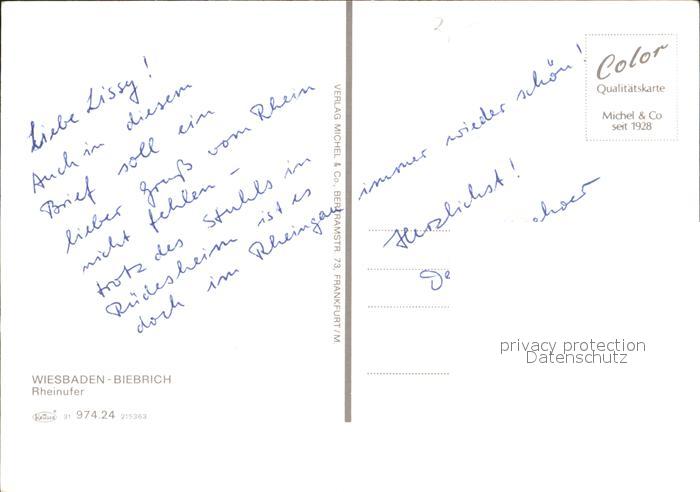 Liebe Lissy!
Auch in diesem
Brief soll ein
lieber Gruß vom Rhein
nicht fehlen –
trotz des Stuhls in
Rüdesheim ist es
doch im Rheingau immer wieder schön!
Herzlichst!
De
WIESBADEN-BIEBRICH
Rheinufer
31 974.24 215363
VERLAG MICHEL & Co., BERTRAMSTR. 73, FRANKFURT/M.
2
Color
Qualitätskarte
Michel & Co
seit 1928
privacy protection
Datenschutz